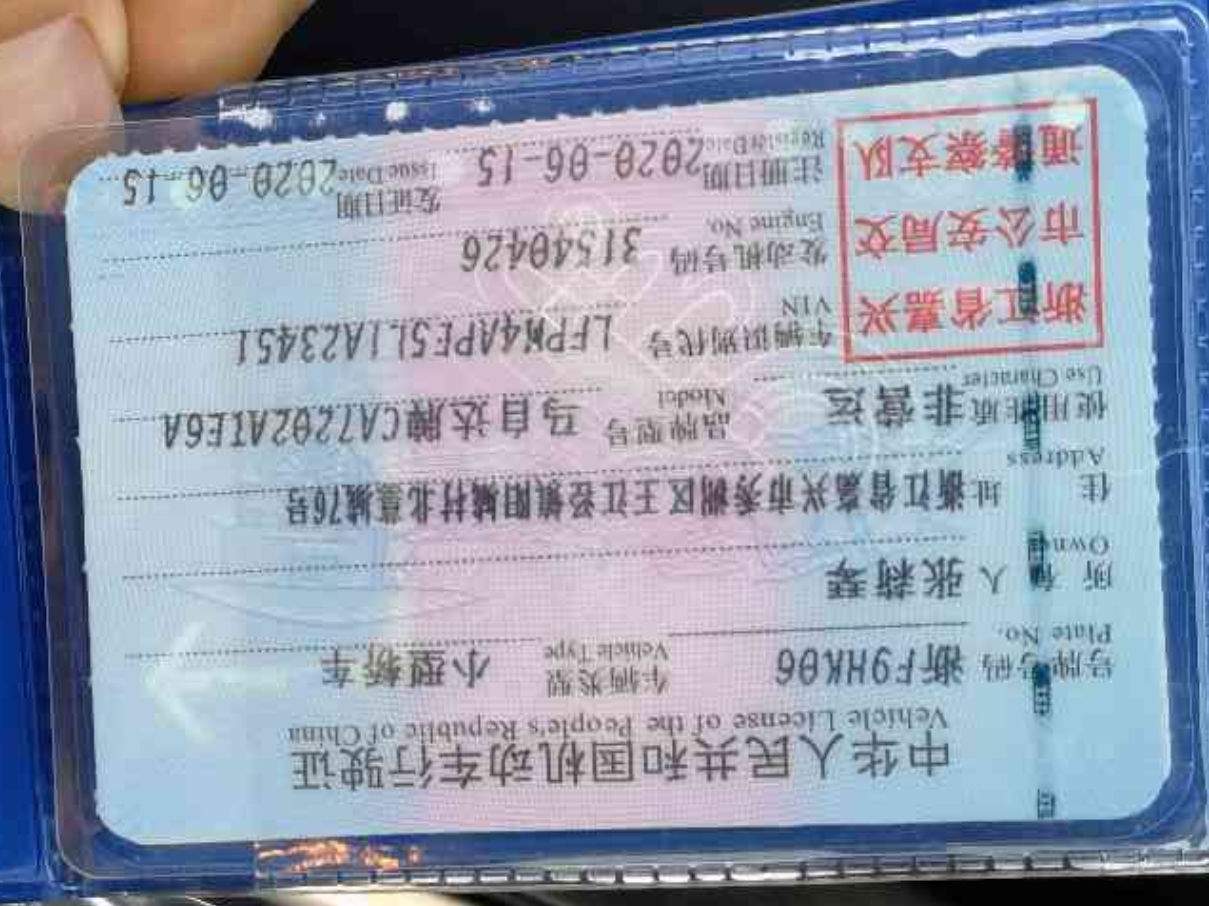 中华人民共和国机动车行驶证
Vehicle License of the People's Republic of China
号牌号码 浙F9HK06 车辆类型 小型轿车
Plate No. Vehicle Type
所有人 张莉琴
Owner
住址 浙江省嘉兴市秀洲区王江泾镇
Address
使用性质 非营运 品牌型号 马自达牌CA7202ATE6A
Use Character Model
浙江省嘉兴
市公安局交
通警察支队
车辆识别代号 LFPM4APE5L1A23451
VIN
发动机号码 31540426
Engine No.
注册日期 2020-06-15 发证日期 2020-06-15
Register Date Issue Date